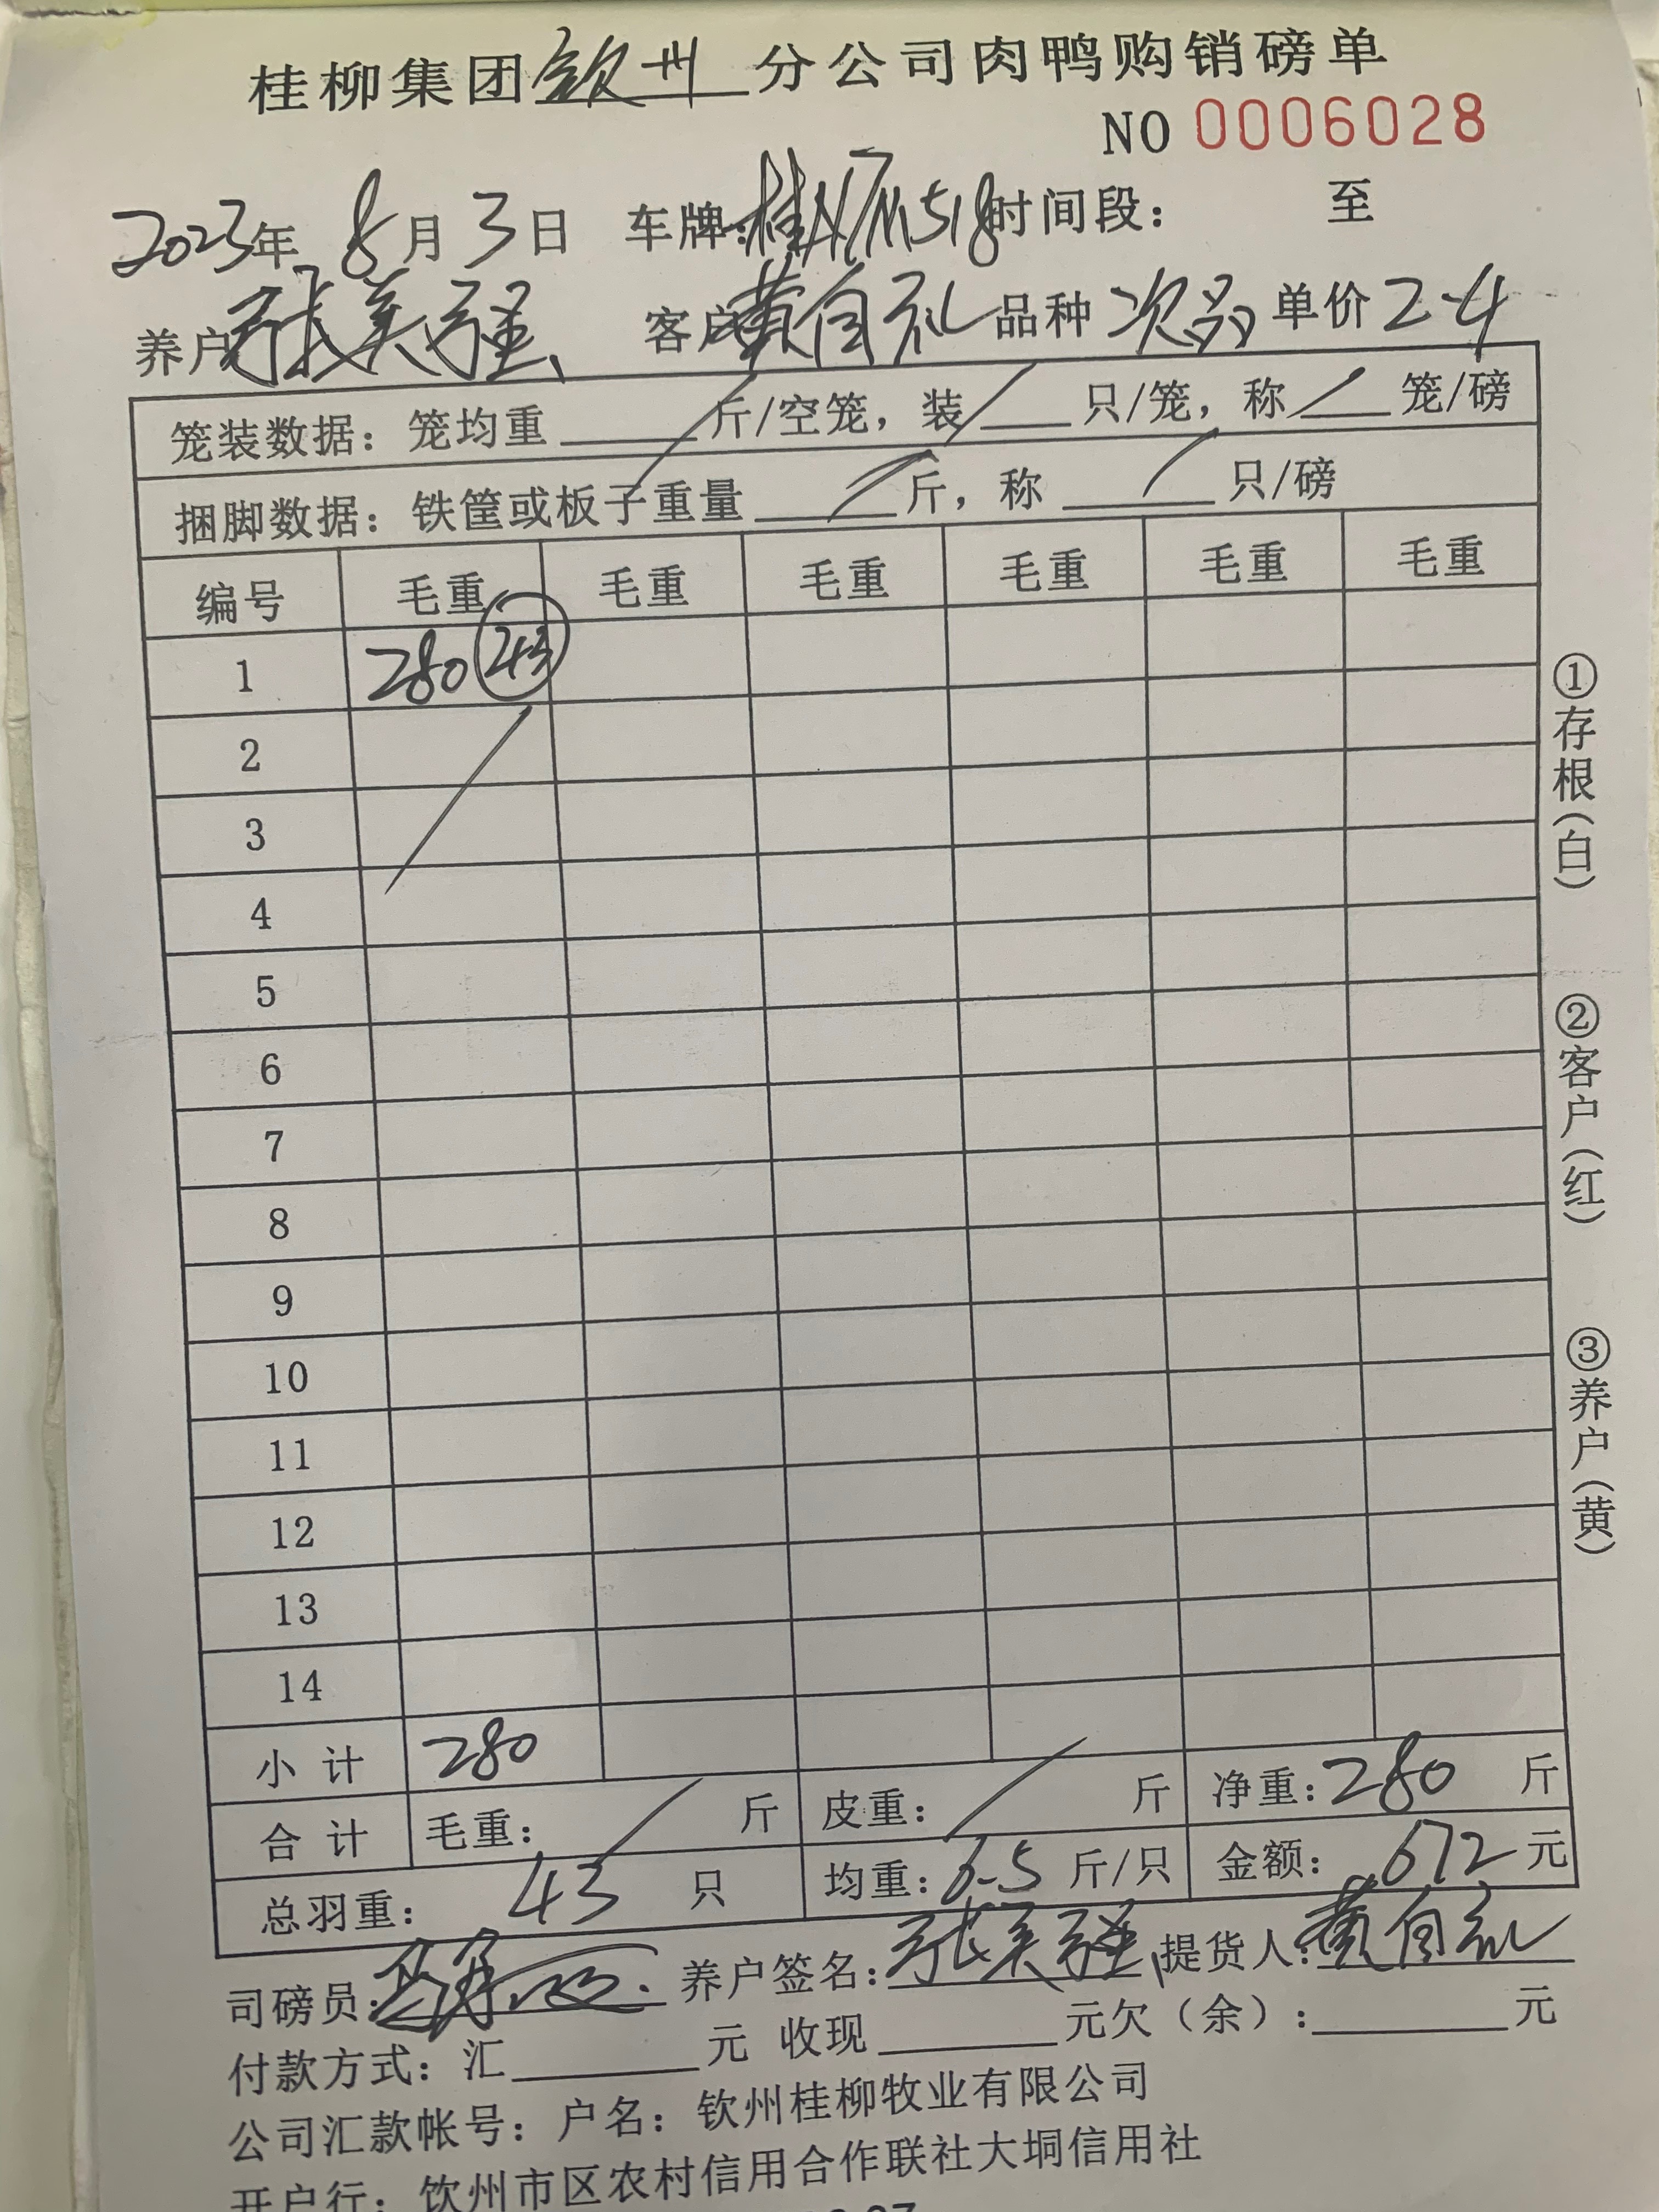 桂柳集团钦州分公司肉鸭购销磅单
NO 0006028
2023年 8月3日 车牌: 时间段: 至
养户 张美 客户 黄自礼 品种 次品 单价 2-4
笼装数据: 笼均重 斤/空笼, 装 只/笼, 称 笼/磅
捆脚数据: 铁筐或板子重量 斤, 称 只/磅
编号 毛重 毛重 毛重 毛重 毛重 毛重
1 280 43
2
3
4
5
6
7
8
9
10
11
12
13
14
小计 280
合计 毛重: 斤 皮重: 斤 净重: 280 斤
总羽重: 43 只 均重: 6-5 斤/只 金额: 672 元
司磅员: 养户签名: 张美 提货人: 黄自礼
付款方式: 汇 元 收现 元欠(余): 元
公司汇款帐号: 户名: 钦州桂柳牧业有限公司
开户行: 钦州市区农村信用合作联社大垌信用社
①存根(白)
②客户(红)
③养户(黄)